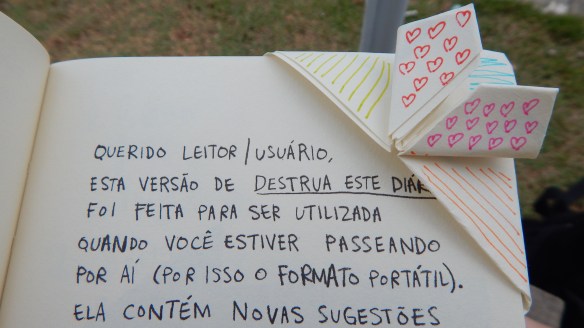 QUERIDO LEITOR/USUÁRIO,
ESTA VERSÃO DE DESTRUA ESTE DIÁR
FOI FEITA PARA SER UTILIZADA
QUANDO VOCÊ ESTIVER PASSEANDO
POR AÍ (POR ISSO O FORMATO PORTÁTIL).
ELA CONTÉM NOVAS SUGESTÕES